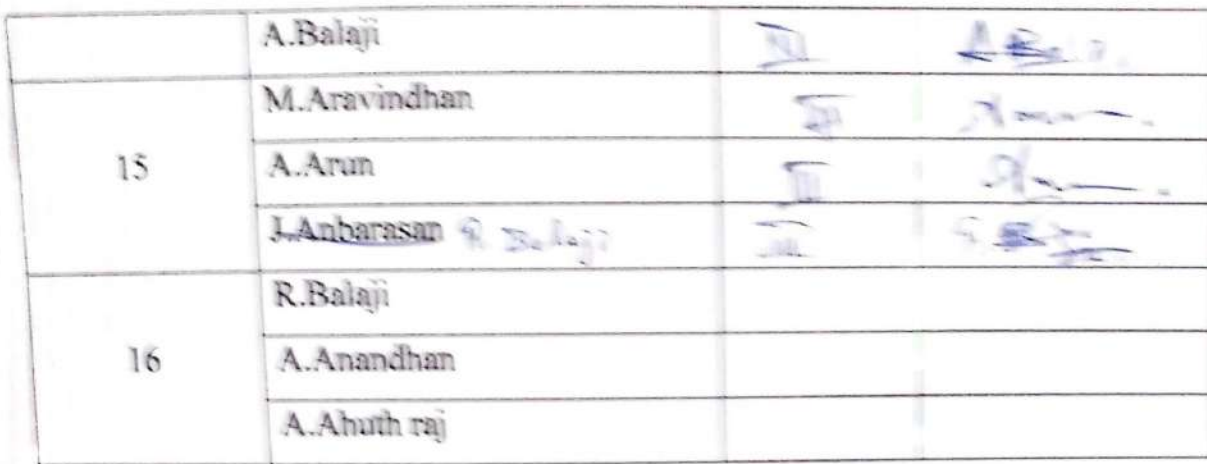 A.Balaji III A Bala.
M.Aravindhan III
15
A.Arun III
J.Anbarasan R. Balaji III
R.Balaji
16
A.Anandhan
A.Ahuth raj